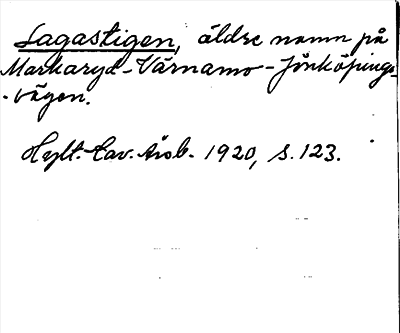 Lagastigen, äldre namn på
Markaryd-Värnamo-Jönköpings-
-vägen.
Hylt.-Cav. Årsb. 1920, s. 123.